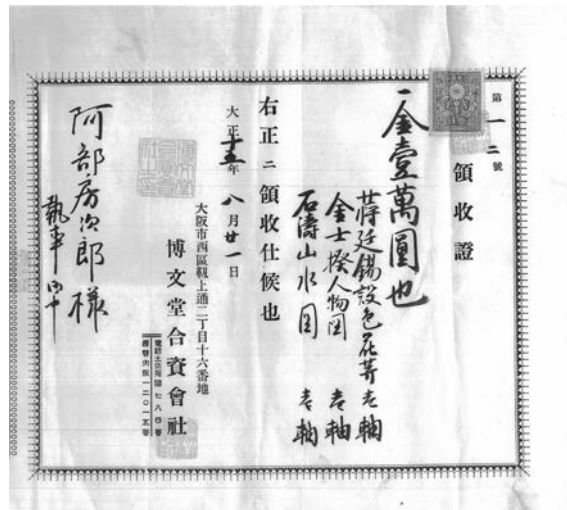 第一二號
領收證
一金壹萬圓也
蔣廷錫設色花卉壱軸
金士揆人物図 壱軸
石濤山水図 壱軸
右正ニ領收仕候也
大正十五年八月廿一日
大阪市西區靱上通二丁目十六番地
博文堂合資會社
阿部房次郎様
執事御中